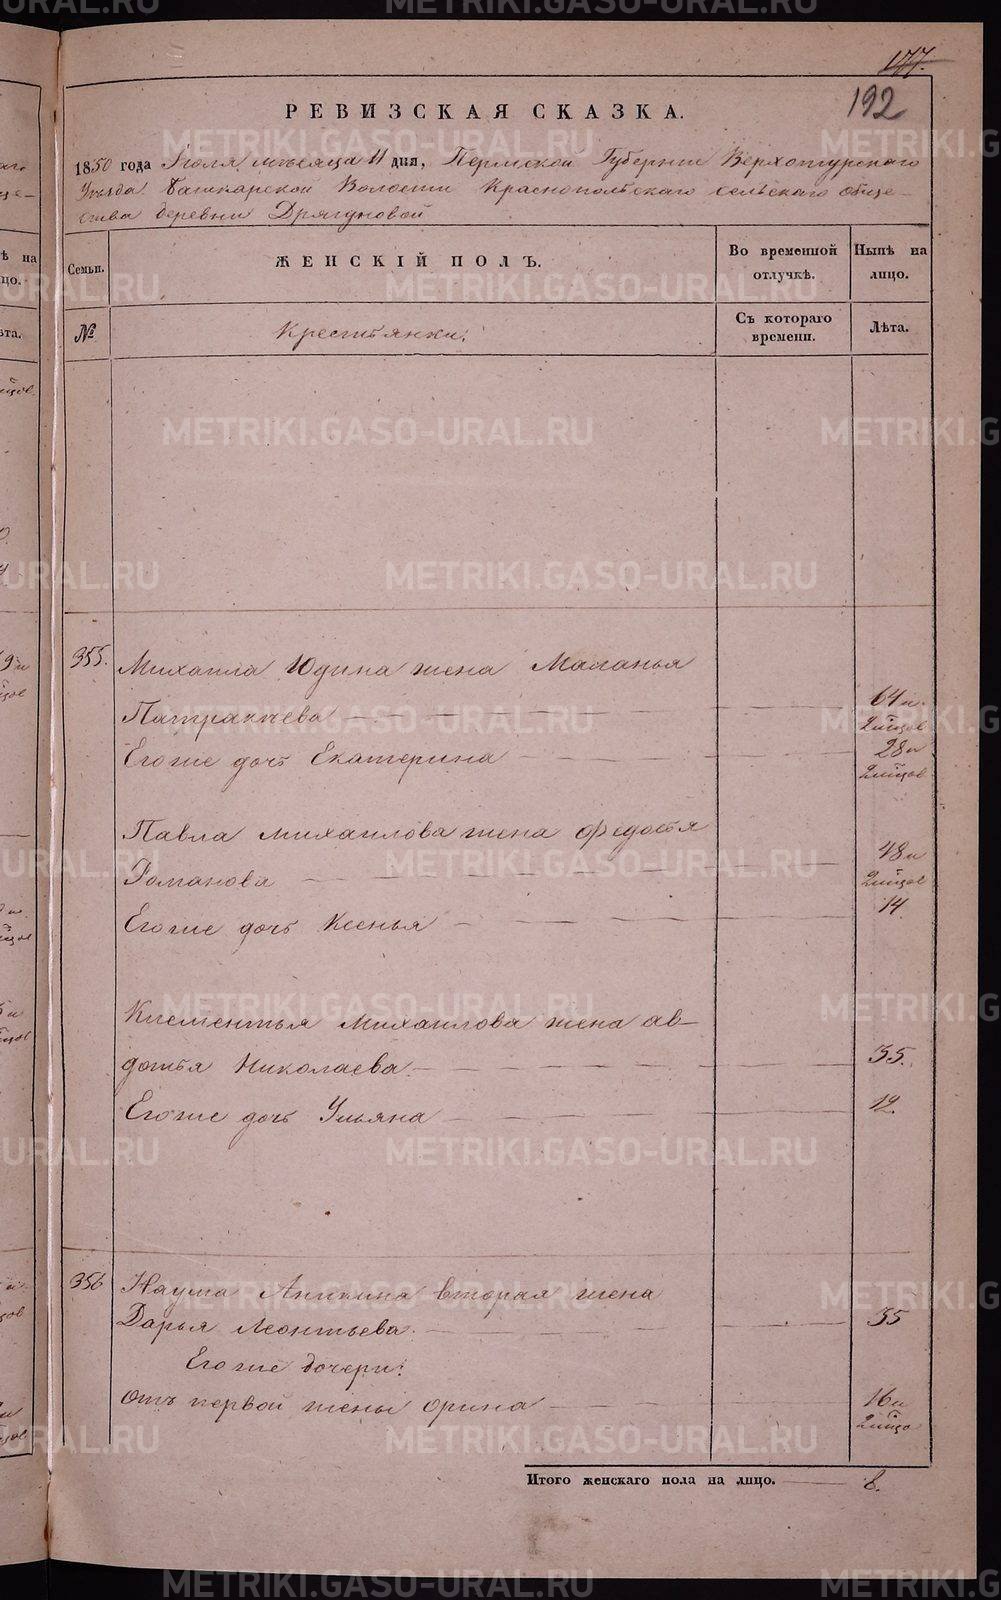 177.
192
РЕВИЗСКАЯ СКАЗКА.
1850 года Іюля месяца 11 дня, Пермской Губерніи Верхотурскаго
Уезда Башкарской Волости Краснопольскаго сельскаго обще-
ства деревни Дрягуновой
Семьи.
ЖЕНСКІЙ ПОЛЪ.
Во временной отлучкѣ.
Нынѣ на лицо.
№
Крестьянки:
Съ котораго времени.
Лѣта.
355.
Михаила Юдина жена Маланья
Патракеева 64 и 2 мѣсцов
Его же дочь Екатерина 28 и 2 мѣсцов
Павла Михаилова жена Федосья
Романова 48 и 2 мѣсцов
Его же дочь Ксенья 14.
Клементья Михаилова жена Ав-
дотья Николаева. 35.
Его же дочь Ульяна 12.
356
Наума Аникина вторая жена
Дарья Леонтьева. 35
Его же дочери:
Отъ первой жены Орина 16 и 2 мѣсцо
Итого женскаго пола на лицо. 8.
METRIKI.GASO-URAL.RU